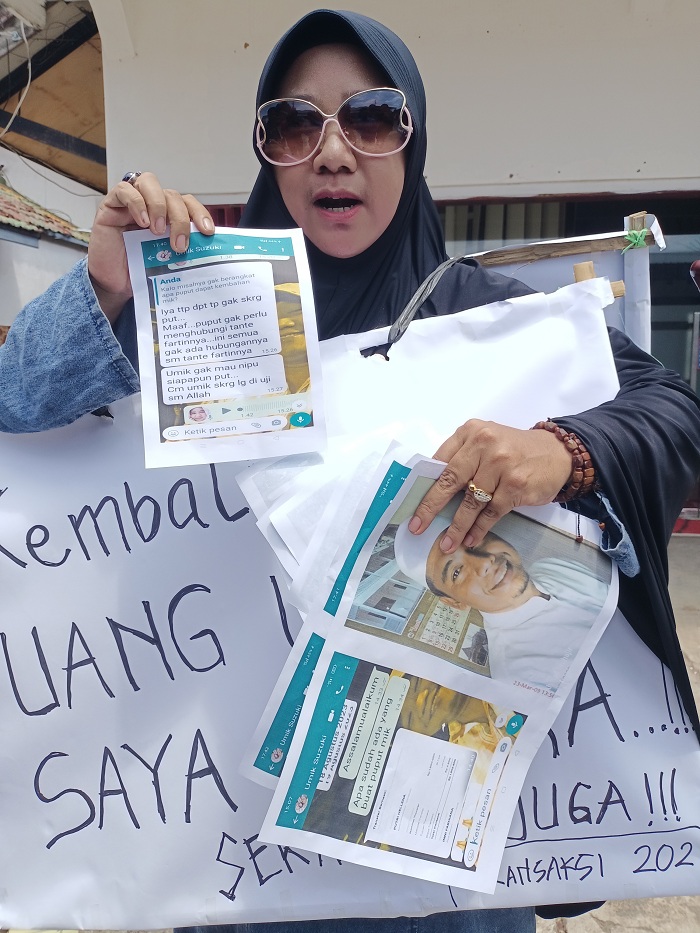 Umik Suzuki
Anda
Kalo misalnya gak berangkat
apa puput dapat kembalian
mik?
Iya ttp dpt tp gak skrg
put...
Maaf...puput gak perlu
menghubungi tante
fartinnya...ini semua
gak ada hubungannya
sm tante fartinnya
15:26
Umik gak mau nipu
siapapun put...
Cm umik skrg lg di uji
sm Allah
15:27
1:42
15:28
Ketik pesan
Kembal
UANG
SAYA
A...!!
JUGA!!!
SEK
ANSAKSI 202
23-Mar-09
17:42
Umik Suzuki
15:07
Umik Suzuki
18 Agustus 2023
Assalamualaikum
Apa sudah ada yang
buat puput mik
Ketik pesan